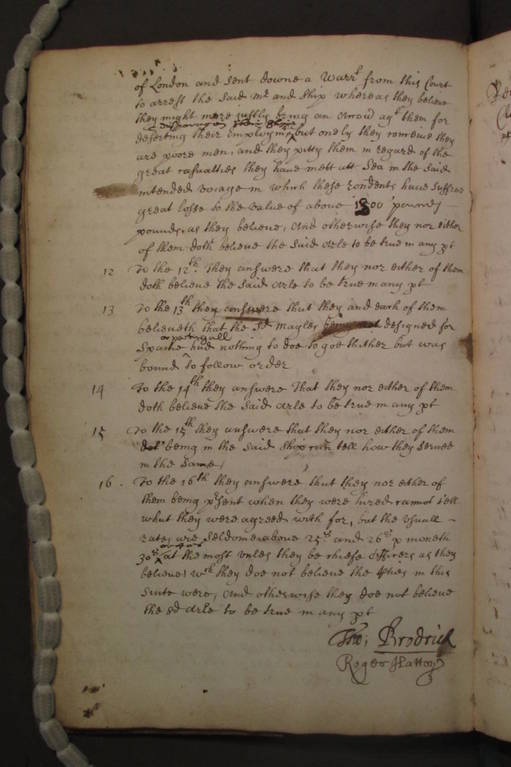 of London and sent downe a Warrt from this Court
to arrest the said Mr and Ship whereas they beleive
they might more justly bring an accon agt them for
deserting their imploymt but onely they conceive they
are poore men, and they pitty them in regard of the
great casualties they have mett att Sea in the said
intended voiage in which these rondents have suffred
great losse to the value of above 1800 pounds
pounds, as they beleive, and otherwise they nor either
of them doth beleive the said arle to be true in any pt
12 To the 12th they answere that they nor either of them
doth beleive the said arle to be true in any pt
13 To the 13th they answere that they and each of them
beleiveth that the sd Mayler designed for
or portingall
Spaine had nothing to doe to goe thither but was
bound to follow order
14 To the 14th they answere That they nor either of them
doth beleive the said arle to be true in any pt
15 To the 15th they answere that they nor either of them
being in the said ship can tell how they served
in the same,
16. To the 16th they answere that they nor either of
them being psent when they were hired cannot tell
what they were agreed with for, but the usuall
rates are seldome above 25s and 26s p moneth
or
30s at the most unles they be cheife officers as they
beleive, wch they doe not beleive the pties in this
suite were, and otherwise they doe not beleive
the sd arle to be true in any pt
Tho: Brodrick
Roger Hatton